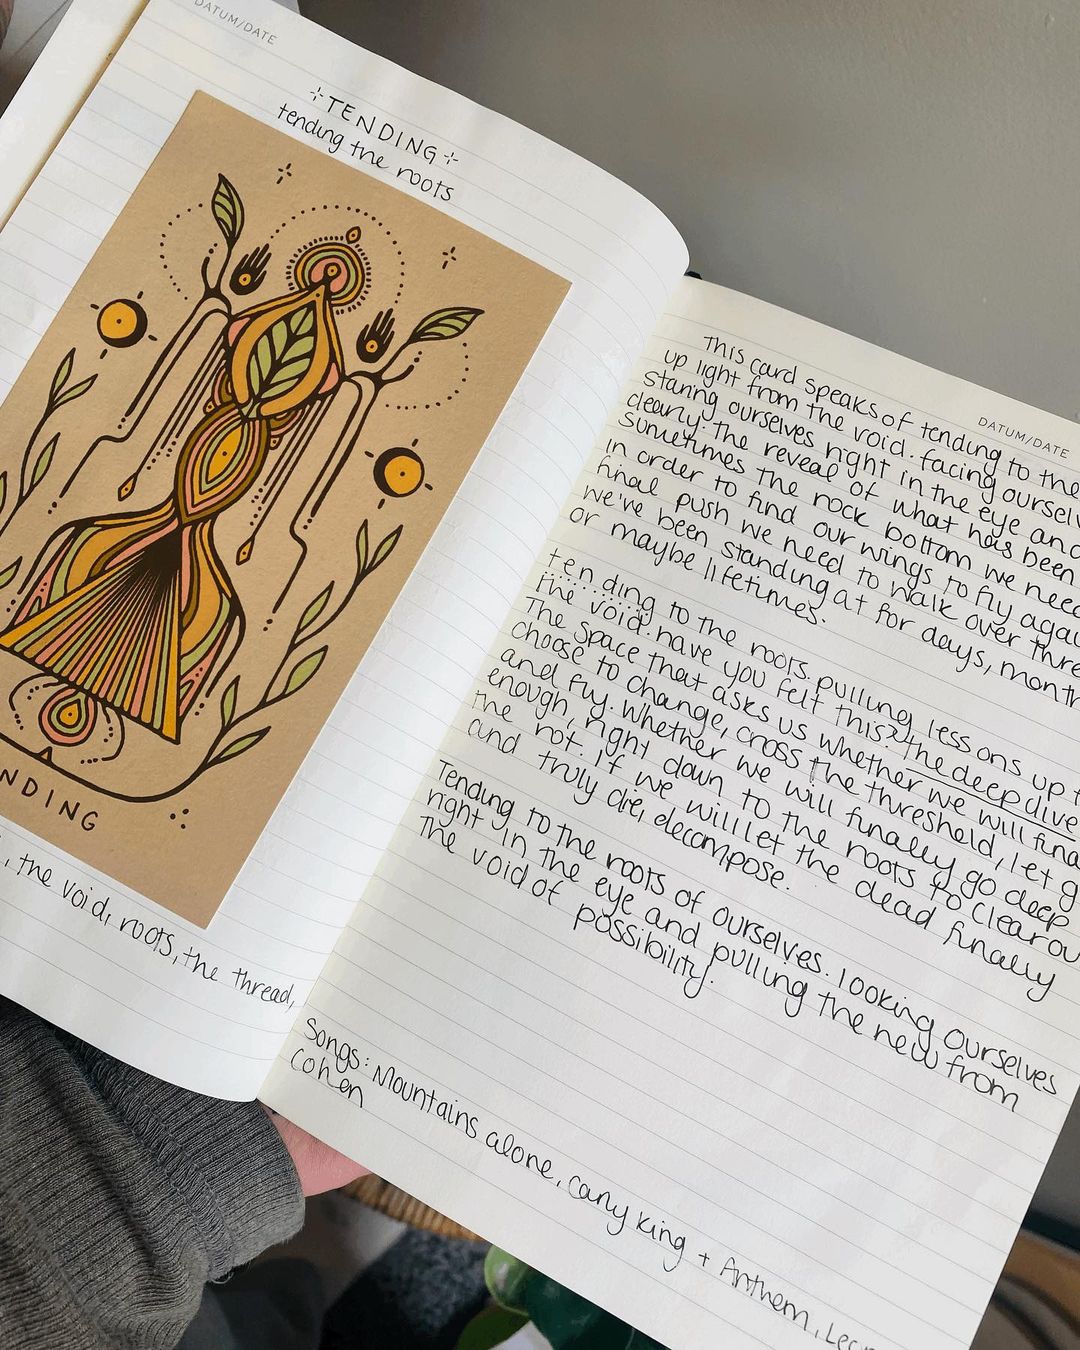 DATUM/DATE
TENDING
tending the roots
NDING
, the void, roots, the thread,
DATUM/DATE
This card speaks of tending to the
up light from the void. facing ourselv
staring ourselves right in the eye and
clearly. The reveal of what has been
Sometimes the rock bottom we need
in order to find our wings to fly again
final push we need to walk over thre
we've been standing at for days, month
or maybe lifetimes.
tending to the roots. pulling lessons up
the void. have you felt this? the deep dive
The space that asks us whether we will fina
choose to change, cross the threshold, let g
and fly. Whether we will finally go deep
enough, right down to the roots to clear ou
the rot. If we will let the dead finally
and truly die, decompose.
Tending to the roots of ourselves. looking ourselves
right in the eye and pulling the new from
the void of possibility.
Songs: Mountains alone, carly king + Anthem,
Cohen